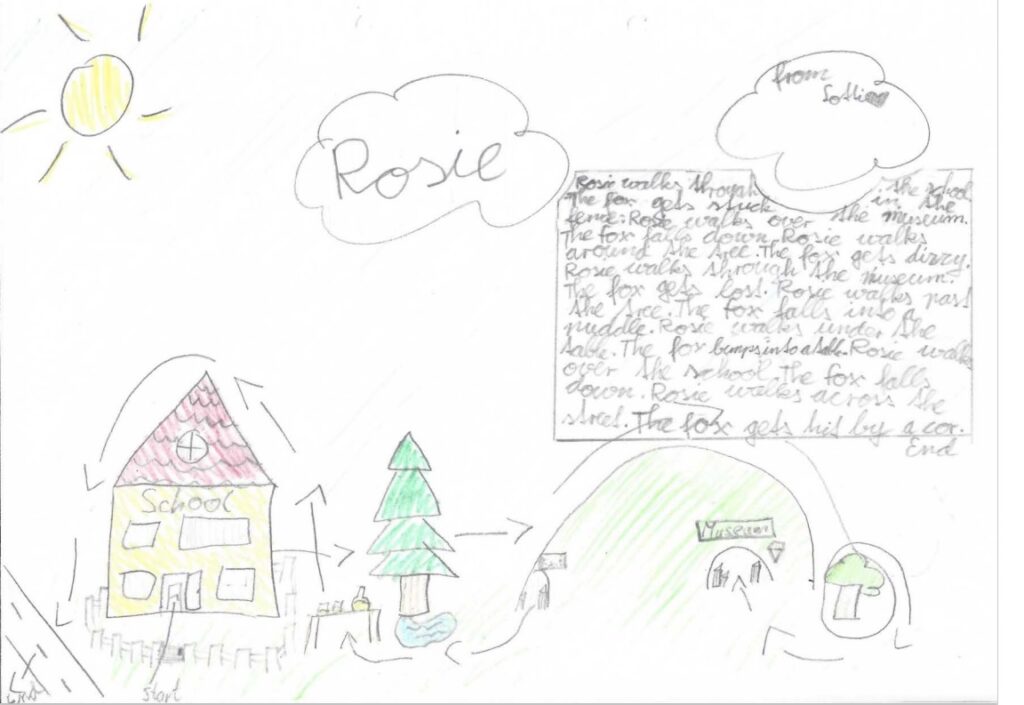 from
Rosie
Rosie walks through the school.
The fox gets stuck in the
fence. Rosie walks over the museum.
The fox falls down. Rosie walks
around the tree. The fox gets dizzy.
Rosie walks through the museum.
The fox gets lost. Rosie walks past
the tree. The fox falls into a
puddle. Rosie walks under the
table. The fox bumps into a table. Rosie walks
over the school. The fox falls
down. Rosie walks across the
street. The fox gets hit by a car.
End
School
Museum
Exit
Start
End